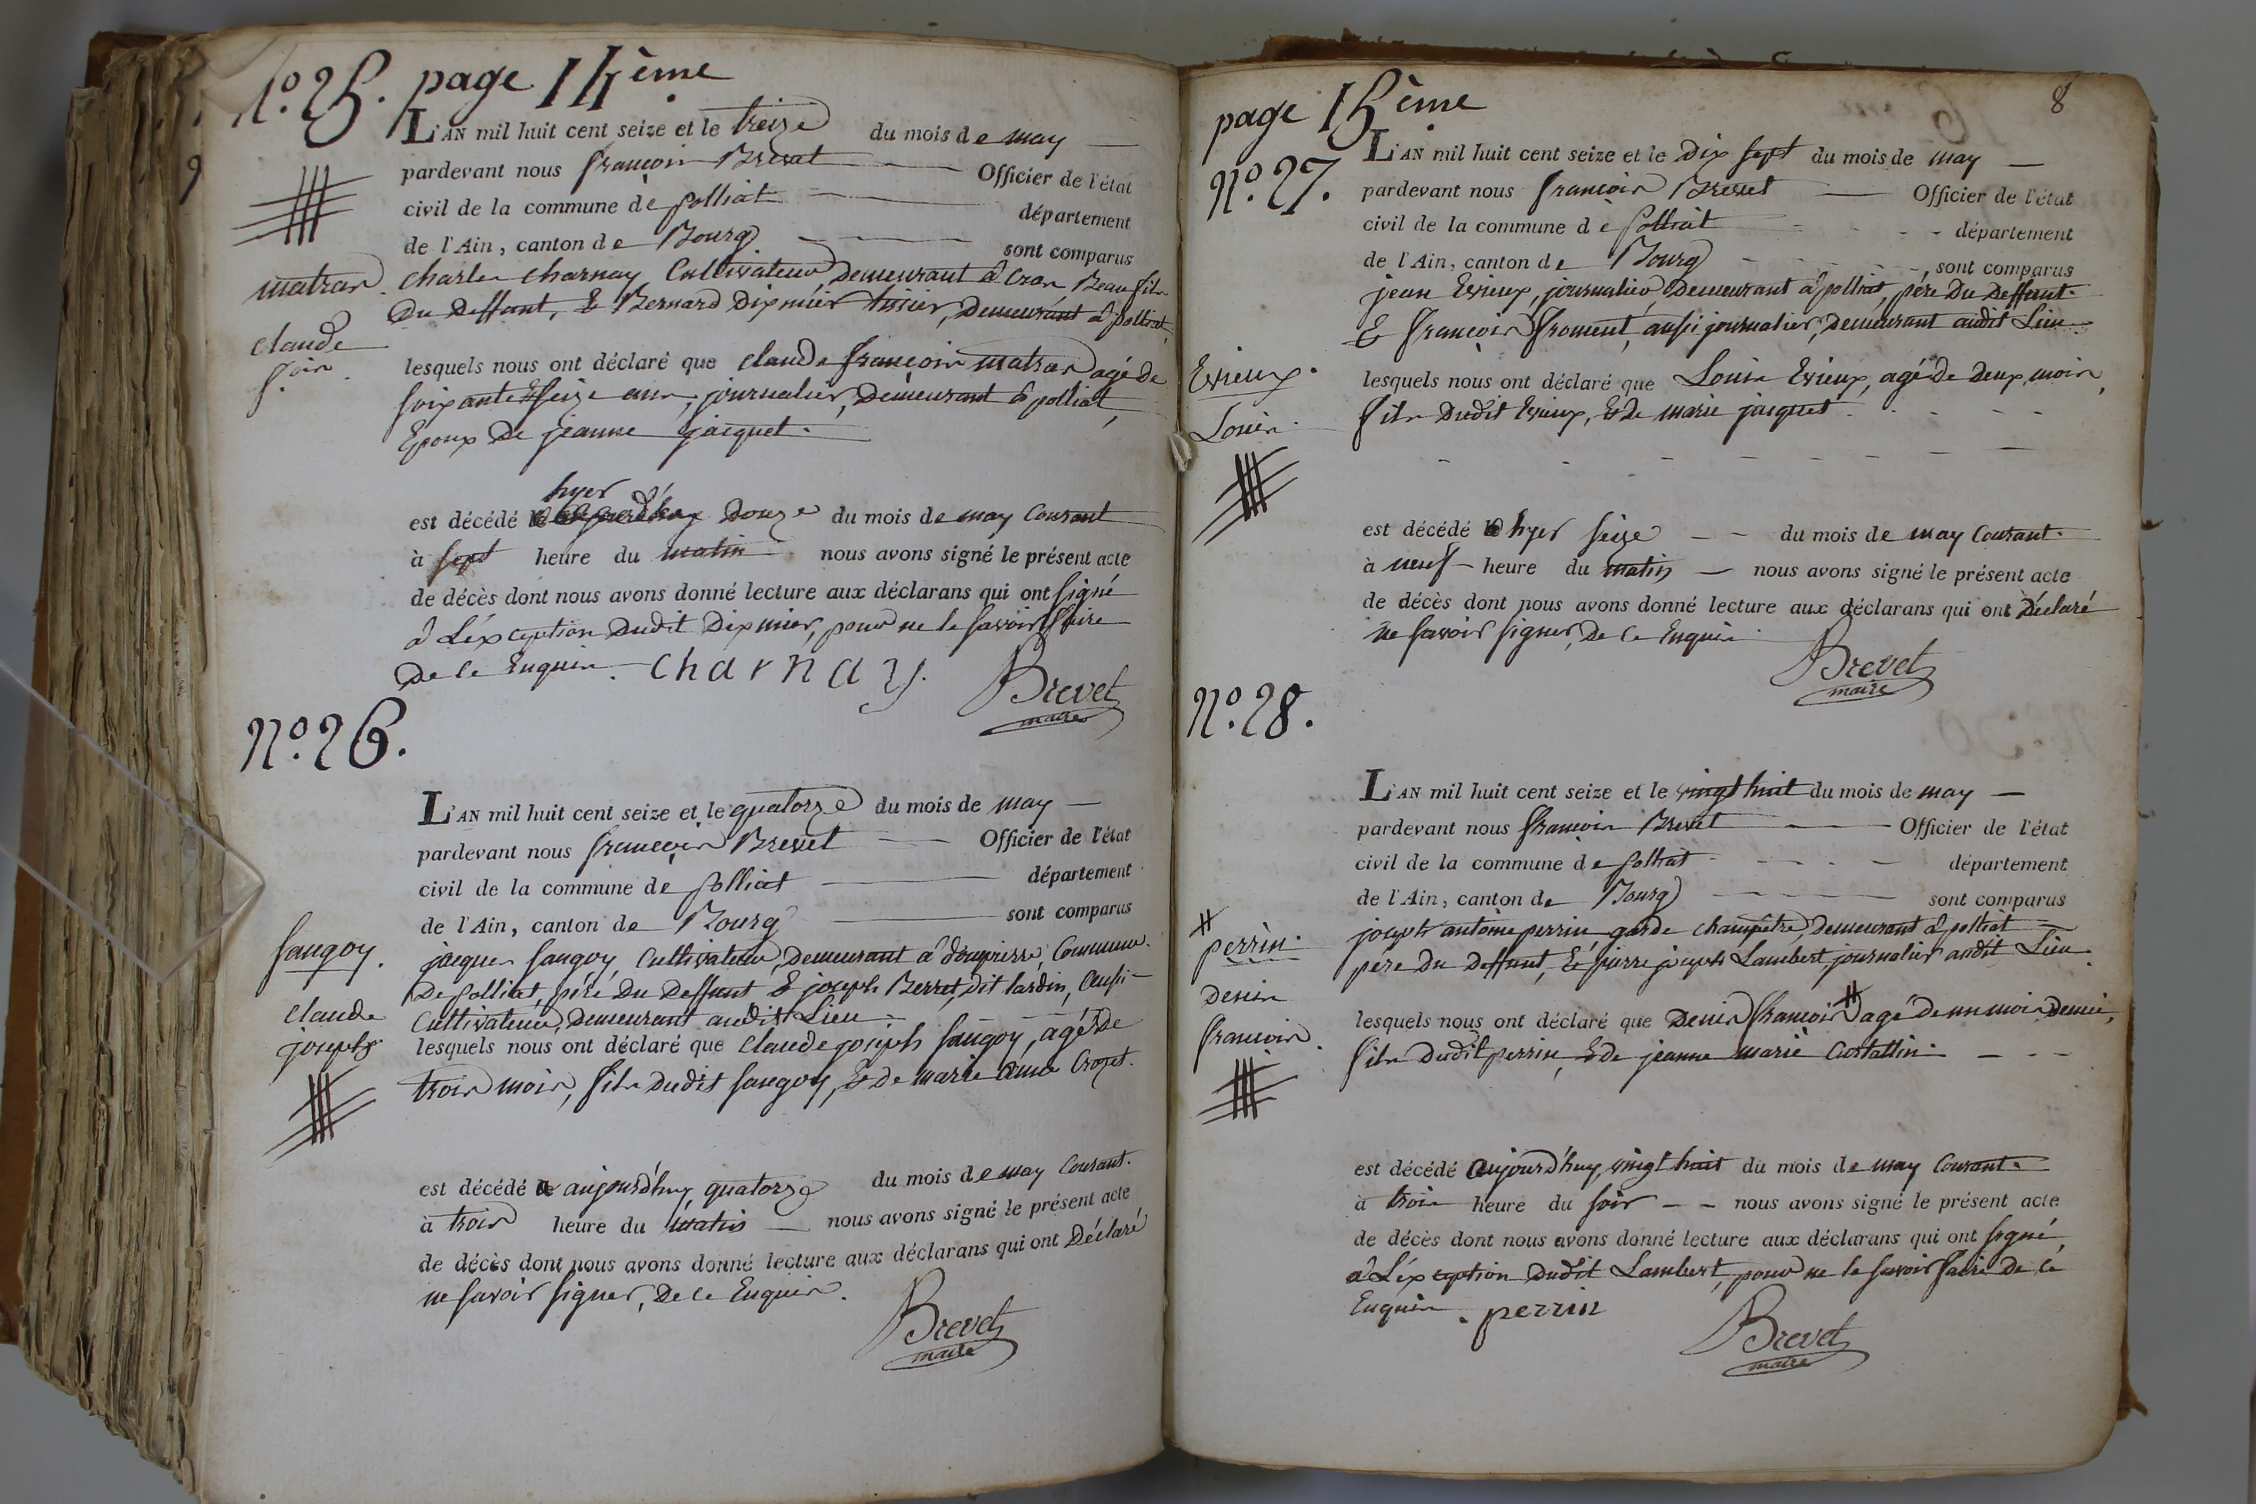 N.º 25. page 14ème
L'AN mil huit cent seize et le treize du mois de may
pardevant nous françois Brevet Officier de l'état
civil de la commune de polliat département
de l'Ain, canton de Bourg sont comparus
matras
claude
f.ois
charles charnay Cultivateur Demeurant à Cras Beau fils
Du Deffunt, & Bernard Dixmier tissier, Demeurant à polliat,
lesquels nous ont déclaré que claude françois matras agé de
soixante & seize ans, journalier, Demeurant à polliat,
Epoux De jeanne jacquet.
hyer
est décédé le aujourd'huy Douze du mois de may Courant
à sept heure du matin nous avons signé le présent acte
de décès dont nous avons donné lecture aux déclarans qui ont signé
à L'éxception Dudit Dixmier, pour ne le savoir faire
De ce Enquis. charnay.
Brevet
maire
N.º 26.
L'AN mil huit cent seize et le quatorze du mois de may
pardevant nous françois Brevet Officier de l'état
civil de la commune de polliat département
de l'Ain, canton de Bourg sont comparus
fangoy.
claude
joseph
jacques fangoy, Cultivateur, Demeurant à Commune
De polliat, père Du Deffunt & joseph Berret, dit jardin, Aussi
Cultivateur, Demeurant audit Lieu
lesquels nous ont déclaré que claude joseph fangoy, agé de
trois mois, fils Dudit fangoy, & de marie anne Crozet.
est décédé le aujourd'huy quatorze du mois de may Courant.
à trois heure du matin nous avons signé le présent acte
de décès dont nous avons donné lecture aux déclarans qui ont Déclaré
ne savoir signer, De ce Enquis.
Brevet
maire
8
page 15ème
N.º 27.
L'AN mil huit cent seize et le Dix sept du mois de may
pardevant nous françois Brevet Officier de l'état
civil de la commune de polliat département
de l'Ain, canton de Bourg sont comparus
Evieux.
Louis.
jean Evieux, journalier Demeurant à polliat, père Du Deffunt.
& françois froment, aussi journalier, Demeurant audit Lieu
lesquels nous ont déclaré que Louis Evieux, agé de Deux mois,
fils Dudit Evieux, & de marie jacquet.
est décédé le hyer seize du mois de may Courant.
à neuf heure du matin nous avons signé le présent acte
de décès dont nous avons donné lecture aux déclarans qui ont Déclaré
ne savoir signer, De ce Enquis.
Brevet
maire
N.º 28.
L'AN mil huit cent seize et le vingt huit du mois de may
pardevant nous françois Brevet Officier de l'état
civil de la commune de polliat département
de l'Ain, canton de Bourg sont comparus
perrin.
Denis
françois.
joseph antoine perrin garde champêtre, Demeurant à polliat
père Du Deffunt, & pierre joseph Lambert journalier audit Lieu
lesquels nous ont déclaré que Denis françois agé de un mois Demi,
fils Dudit perrin, & de jeanne marie Costallin.
est décédé aujourd'huy vingt huit du mois de may Courant.
à trois heure du soir nous avons signé le présent acte
de décès dont nous avons donné lecture aux déclarans qui ont signé,
à L'éxception Dudit Lambert, pour ne le savoir faire De ce
Enquis. perrin
Brevet
maire